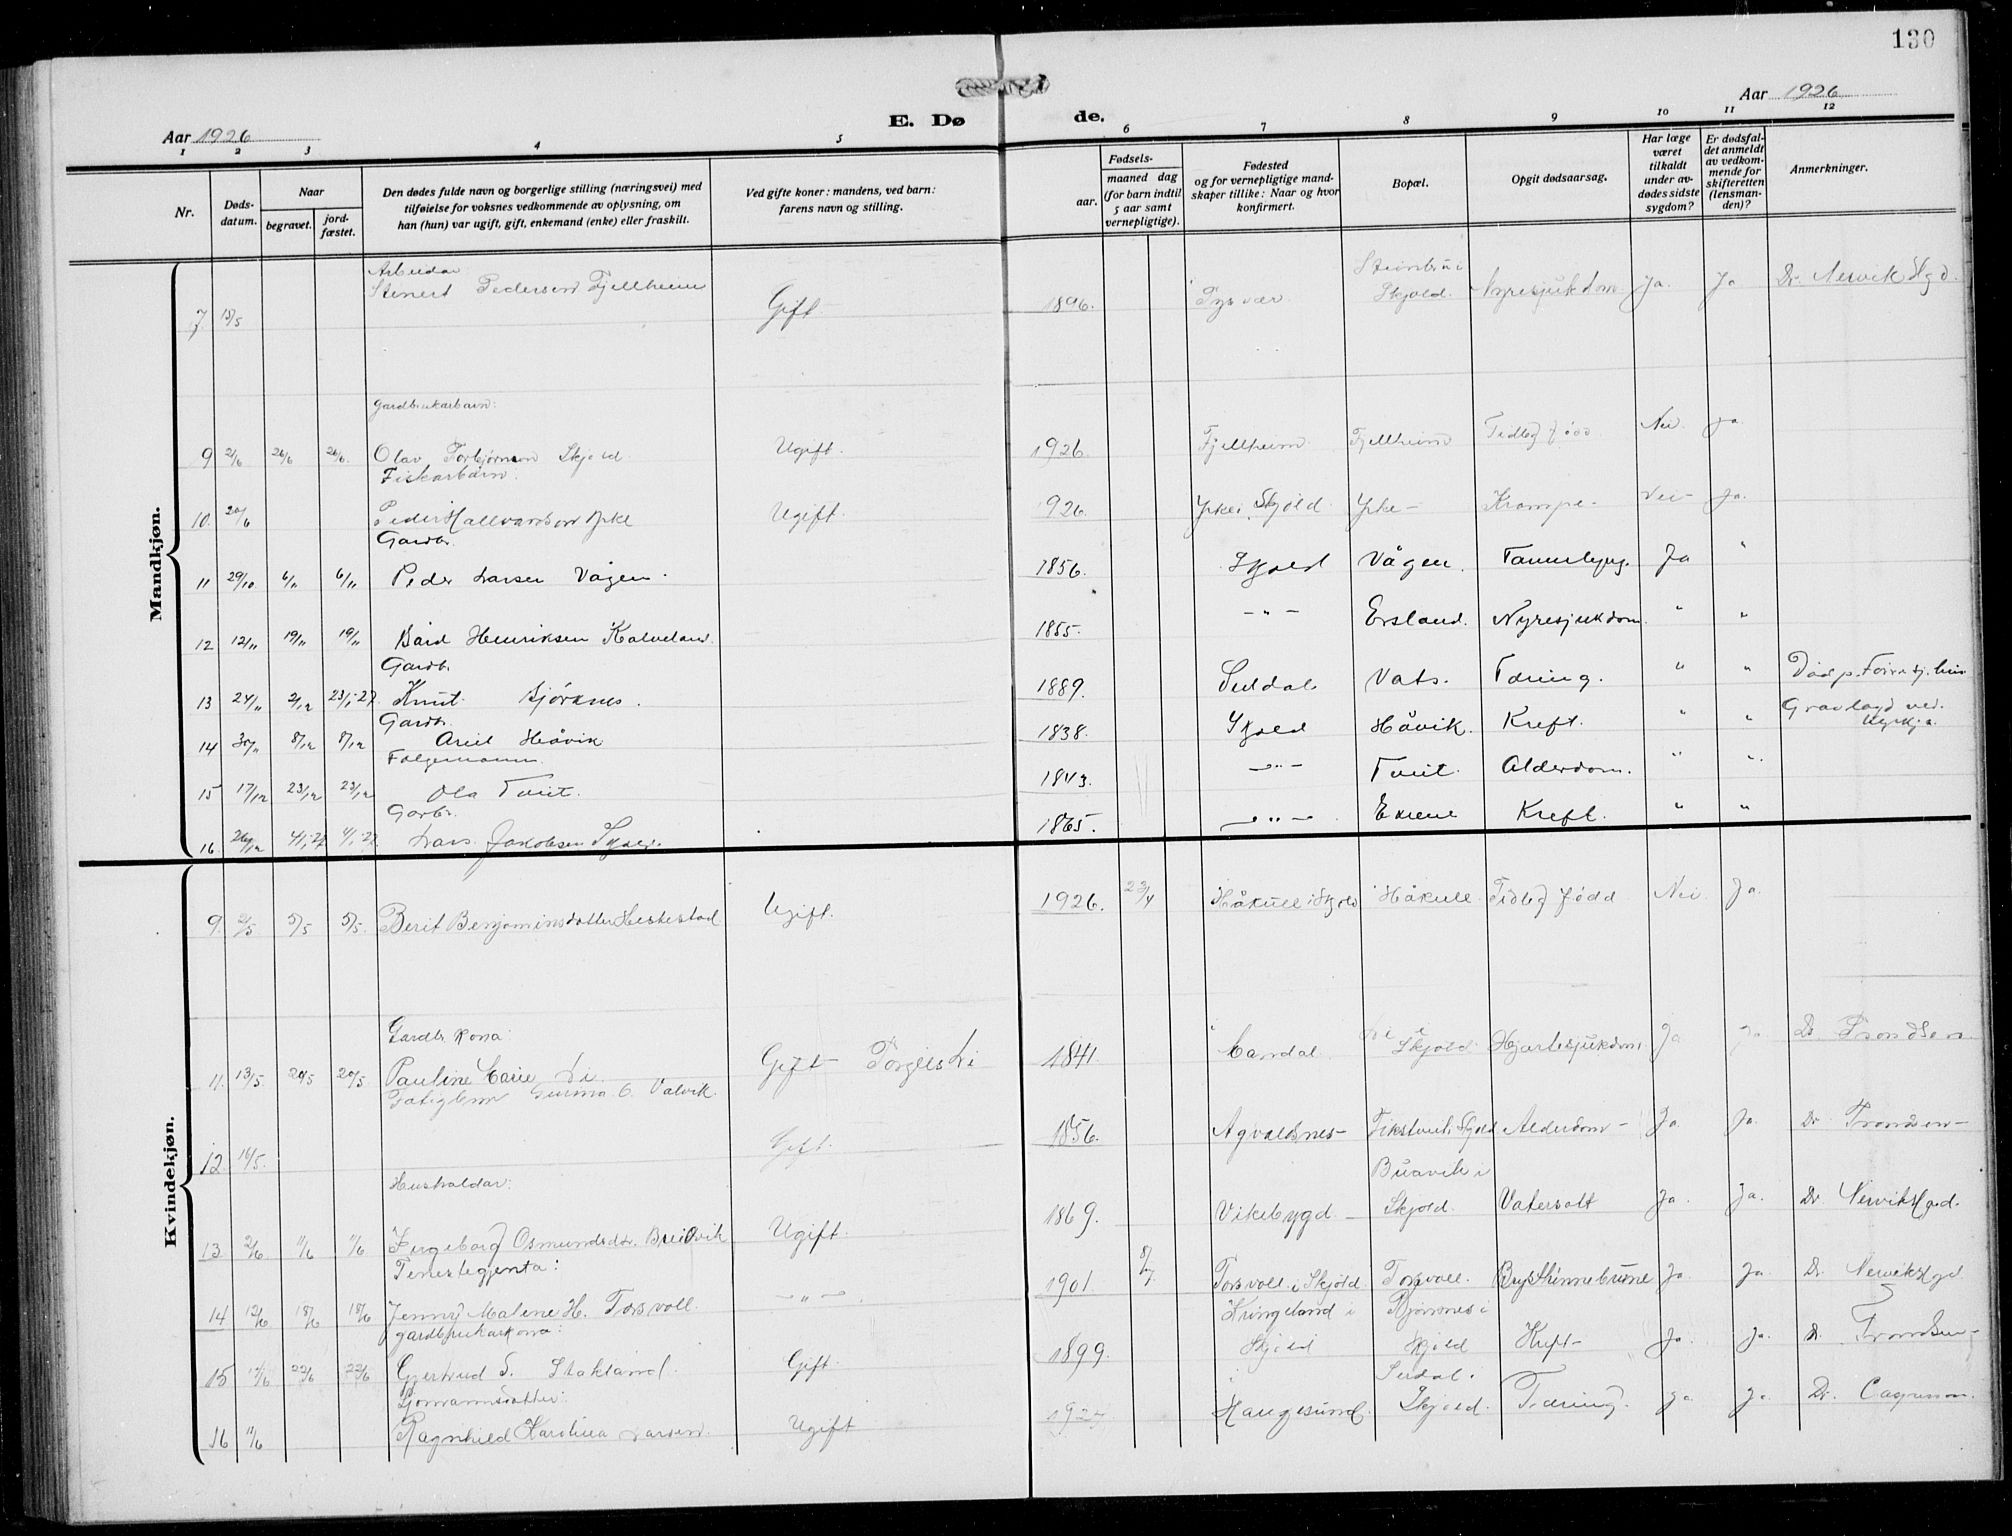 130
Aar 1926
E. Dø de.
Aar 1926
1 2 3 4 5 6 7 8 9 10 11 12
Nr.
Døds-
datum.
Naar
begravet.
jord-
fæstet.
Den dødes fulde navn og borgerlige stilling (næringsvei) med
tilføielse for voksnes vedkommende av oplysning, om
han (hun) var ugift, gift, enkemand (enke) eller fraskilt.
Ved gifte koner: mandens, ved barn:
farens navn og stilling.
Fødsels-
aar.
maaned dag
(for barn indtil
5 aar samt
vernepligtige).
Fødested
og for vernepligtige mand-
skaper tillike: Naar og hvor
konfirmert.
Bopæl.
Opgit dødsaarsag.
Har læge
været
tilkaldt
under av-
dødes sidste
sygdom?
Er dødsfal-
det anmeldt
av vedkom-
mende for
skifteretten
(lensman-
den)?
Anmerkninger.
Mandkjøn.
Arbeidar
7 15/5 Steinert Pedersen Fjellheim Gift 1896. Tysvær Skjold. Nyresjukdom Ja. Ja Dr. Nervik Hgd.
Gardbrukarbarn:
9 2/6 26/6 26/6. Olav Torbjørnson Skjold Ugift. 1926. Fjellheim Fjellheim Tidleg fødd Nei. Ja.
Fiskarbarn.
10. 20/6 Peder Hallvardson Yrke Ugift. 926. Yrke i Skjold Yrke - Krampe - Nei - Ja.
Gardbr.
11 29/10 6/11 6/11 Peder Larsen Vågen. 1856. Skjold Vågen. Ja "
12 12/11 19/11 19/11 Bård Henriksen Kalveland 1855. - " - Ersland. Nyresjukdom. " "
Gardbr.
13 24/11 2/12 23/1-27. Knut Bjørknes. 1889. Suldal Vats. Tæring. " "
Gardbr.
14 30/11 8/12 8/12 Håvik 1838. Skjold Håvik. Kreft. " " Gravlagd ved.
Folgemann.
15 17/12 23/12 23/12 Ola Tveit. 1843. - " - Tveit. Alderdom. " "
Gardbr.
16. 26/12 4/1-27 4/1-27 Lars Jakobsen 1865. - " - Kreft. " "
Kvindekjøn.
9. 2/5 5/5 5/5. Berit Benjaminsdotter Hestestad Ugift. 1926. 23/4 Håkull i Skjold Håkull Tidleg fødd Nei. Ja.
Gardbr. kona:
11. 13/5. 20/5 20/5 Pauline Carie Li Gift Torgils Li 1841. Skjold Hjartesjukdom Ja Ja Dr Trondsen
12. 16/5. Gurina O. Valvik. Gift. 1856. Agvaldsnes- Alderdom - Ja. Ja. Dr. Trondsen -
Hushaldar: Buavik i
13. 2/6 11/6 11/6 Ingeborg Osmundsdtr. Breidvik Ugift. 1869. Vikebygd - Skjold. Vatersott Ja. Ja. Dr Nervik Hgd.
Tenestegjenta:
14 12/6 18/6 18/6 Jenny Malene H. Torsvoll - " - . 1901. 8/7 Torsvoll i Skjold. Torsvoll. Brysthinnebrune Ja. Ja. Dr. Nervik Hgd
gardbrukarkona: Kringeland i
15 22/6 22/6 Gjertrud S. Stakland. Gift. 1899. Skjold Skjold Kreft - Ja. Ja. Dr. Trondsen -
16 11/6 Ragnhild Karolina Larsen. Ugift Haugesund. Skjold. Tæring. Ja Ja. Dr.